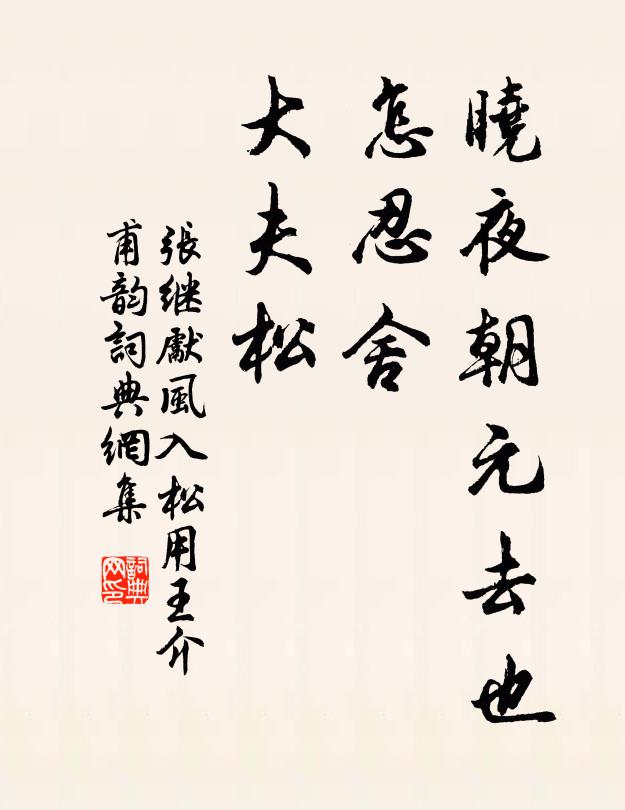 曉夜朝元去也
怎忍舍
大夫松
張继獻風入松用王介
甫韵詞典網集
詞典网印